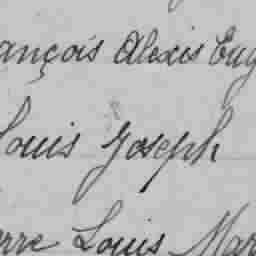 ançois Alexis Eug
Louis Joseph
erre Louis Mar